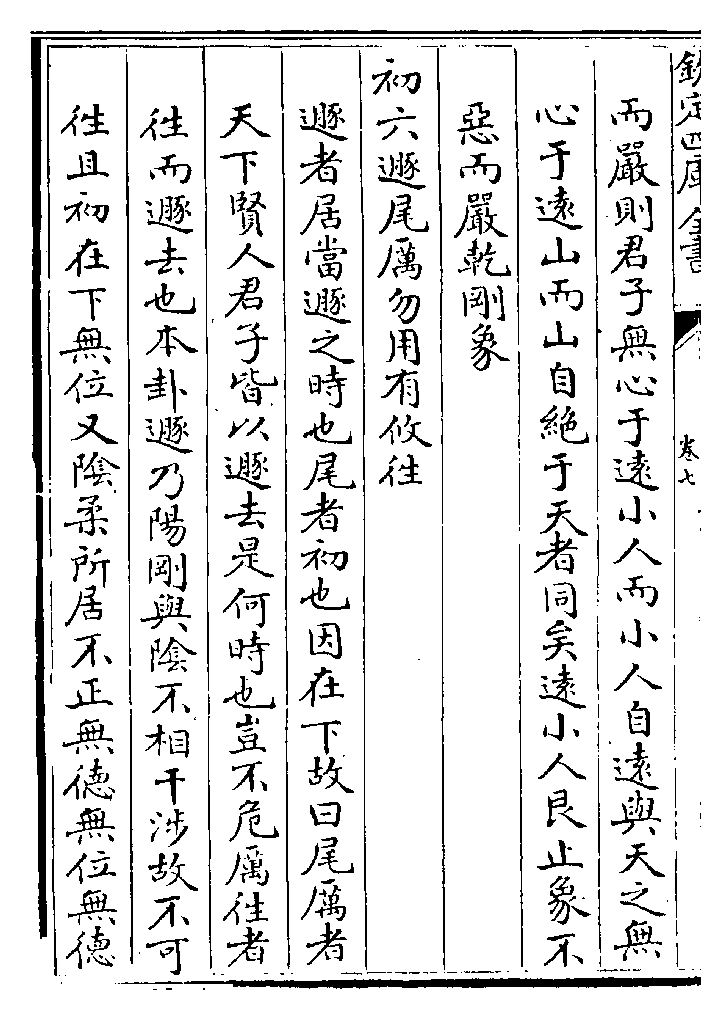 欽定四庫全書
卷七
而嚴則君子無心于逺小人而小人自逺與天之無
心于逺山而山自絶于天者同矣逺小人艮止象不
惡而嚴乾剛象
初六遯尾厲勿用有攸往
遯者居當遯之時也尾者初也因在下故曰尾厲者
天下賢人君子皆以遯去是何時也豈不危厲往者
往而遯去也本卦遯乃陽剛與陰不相干涉故不可
往且初在下無位又陰柔所居不正無德無位無德